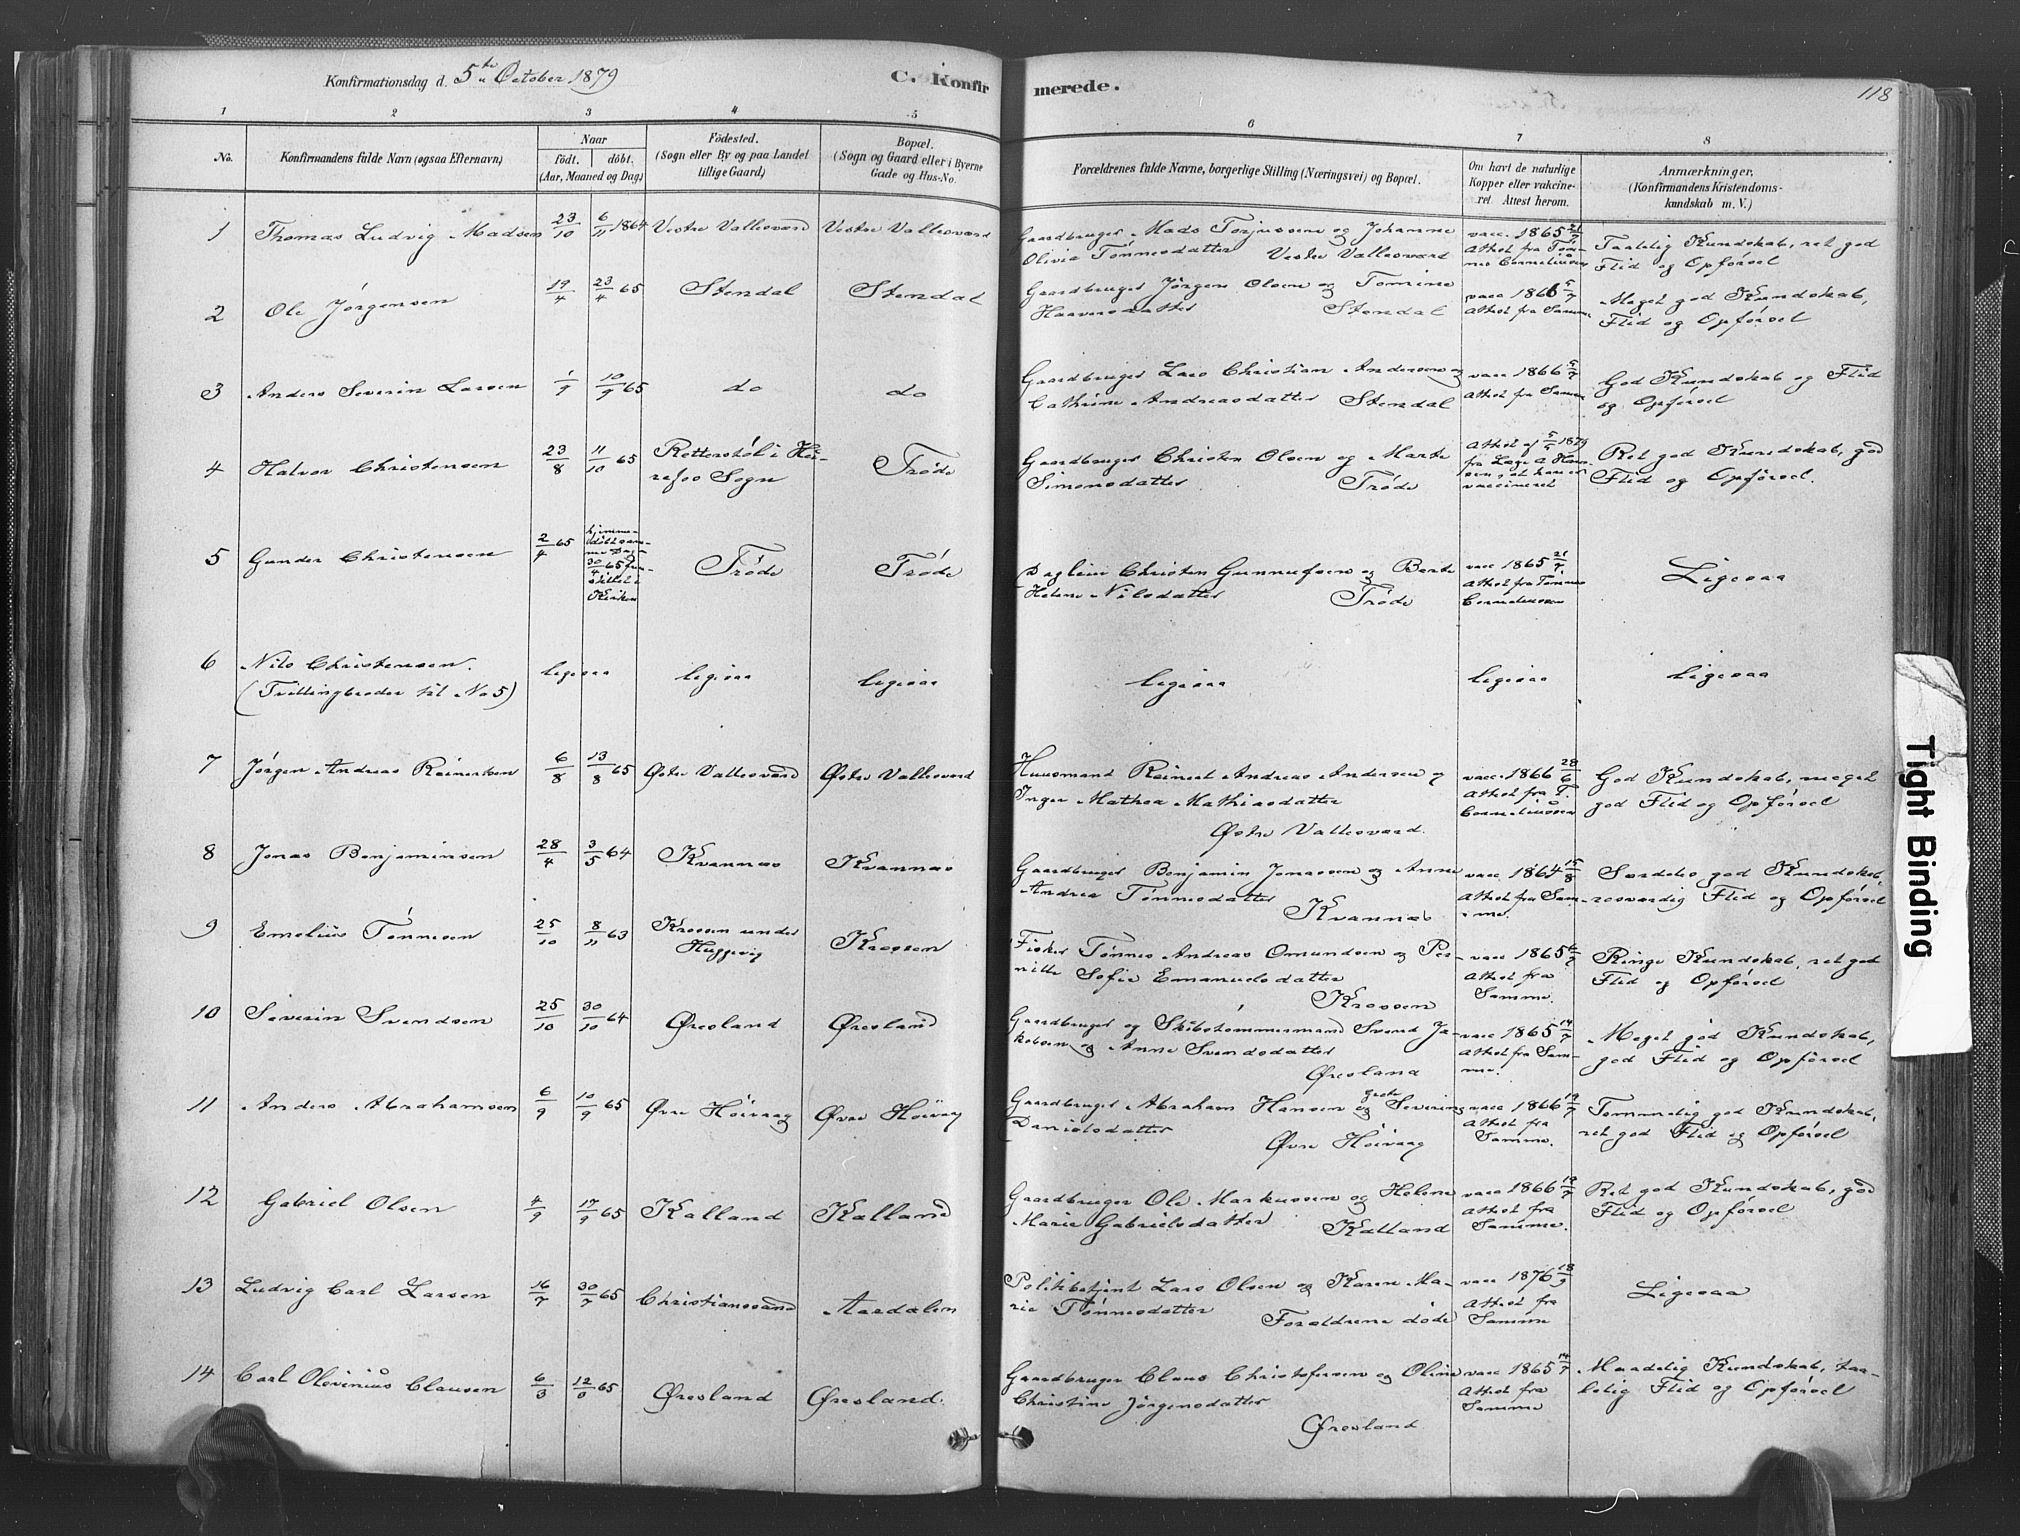 Konfirmationsdag d. 5te October 1879
C. Konfirmerede.
118
1 2 3 4 5 6 7 8
No.
Konfirmandens fulde Navn (ogsaa Efternavn)
Naar
födt. döbt.
(Aar, Maaned og Dag)
Födested.
(Sogn eller By og paa Landet
tillige Gaard)
Bopæl.
(Sogn og Gaard eller i Byerne
Gade og Hus-No.
Forældrenes fulde Navne, borgerlige Stilling (Næringsvei) og Bopæl.
Om havt de naturlige
Kopper eller vakcine-
ret. Attest herom.
Anmærkninger.
(Konfirmandens Kristendoms-
kundskab m. V.)
1 Thomas Ludvig Madsen 23/10 6/11 1864 Vestre Vallesværd Vestre Vallesværd
Gaardbruger Mads Torjussen og Johanne
Olivia Tønnesdatter Vestre Vallesværd
vacc. 1865 21/7
Attest fra Tøn-
nes Corneliussen
Taalelig Kundskab, ret god
Flid og Opførsel
2 Ole Jørgensen 19/4 23/4 65 Stendal Stendal
Gaardbruger Jørgen Olsen og Tomine
Haaversdatter Stendal
vacc 1866 5/7
Attest fra Samme
Meget god Kundskab,
Flid og Opførsel
3 Anders Severin Larsen 1/9 10/9 65 do do
Gaardbruger Lars Christian Andersen og
Cathrine Andreasdatter Stendal
vacc 1866 5/7
Attest fra Samme
God Kundskab og Flid
og Opførsel
4 Halvor Christensen 23/8 11/10 65 Retterstöl i He-
refos Sogn Trøde
Gaardbruger Christen Olsen og Marte
Simonsdatter Trøde
Attest af 5/5 1879
fra Læge A. Han-
sen, at han er
vaccineret
Ret god Kundskab, god
Flid og Opførsel.
5 Gunder Christensen 2/4 65
hjemme-
døbt sam-
me Dag
30/4 65 frem-
stillet i
Kirken
Trøde Trøde
Daglein Christen Gunnufsen og Berte
Helene Nilsdatter Trøde
vacc 1865 21/7
Attest fra Tønnes
Corneliussen
Ligesaa
6 Nils Christensen.
(Tvillingbroder til No 5)
ligesaa ligesaa ligesaa ligesaa ligesaa ligesaa
7 Jørgen Andreas Reinertsen 6/8 13/8 65 Østre Vallesværd Østre Vallesværd
Huusmand Reinert Andreas Andersen og
Inger Mathea Mathiasdatter
Østre Vallesværd.
vacc. 1866 28/6
Attest fra T.
Corneliussen
God Kundskab, meget
god Flid og Opførsel
8 Jonas Benjaminsen 28/4 3/5 64 Kvannæs Kvannæs
Gaardbruger Benjamin Jonassen og Anne
Andrea Tønnesdatter
Kvannæs
vacc 1864 15/8
Attest fra Sam-
me.
Særdeles god Kundskab,
rosværdig Flid og Opførsel
9 Emelius Tønnesen 25/10 8/11 63 Krossen under
Huggevig Krossen
Fisker Tønnes Andreas Omundsen og Per-
nille Sofie Emanuelsdatter
Krossen
vacc 1865
Attest fra
Samme.
Ringe Kundskab, ret god
Flid og Opførsel
10 Severin Svendsen 25/10 30/10 64 Øresland Øresland
Gaardbruger og Skibstømmermand Svend Ja-
kobsen og Anne Svendsdatter
Øresland
vacc 1865 14/7
Attest fra Sam-
me.
Meget god Kundskab,
god Flid og Opførsel
11 Anders Abrahamsen 6/9 10/9 65 Øvre Höivaag Øvre Höivag
Gaardbruger Abraham Hansen og Severine
Danielsdatter
Øvre Höivaag
vacc 1866 19/7
Attest fra
Samme.
Temmelig god Kundskab,
ret god Flid og Opførsel
12 Gabriel Olsen 4/9 17/9 65 Kalland Kalland
Gaardbruger Ole Markussen og Helene
Marie Gabrielsdatter Kalland
vacc 1866 19/7
Attest fra
Samme.
Ret god Kundskab, god
Flid og Opførsel
13 Ludvig Carl Larsen 16/7 30/7 65 Christianssand Aardalen
Politibetjent Lars Olsen og Karen Ma-
rie Tønnesdatter
Forældrene døde
vacc 1876 18/9
Attest fra
Samme
Ligesaa
14 Carl Olevinius Clausen 6/3 65 Øresland Øresland.
Gaardbruger Claus Christofersen og Oline
Christine Jørgensdatter
Øresland
vacc 1865 14/7
Attest fra
Samme
Maadelig Kundskab, taa-
lelig Flid og Opførsel
Tight Binding